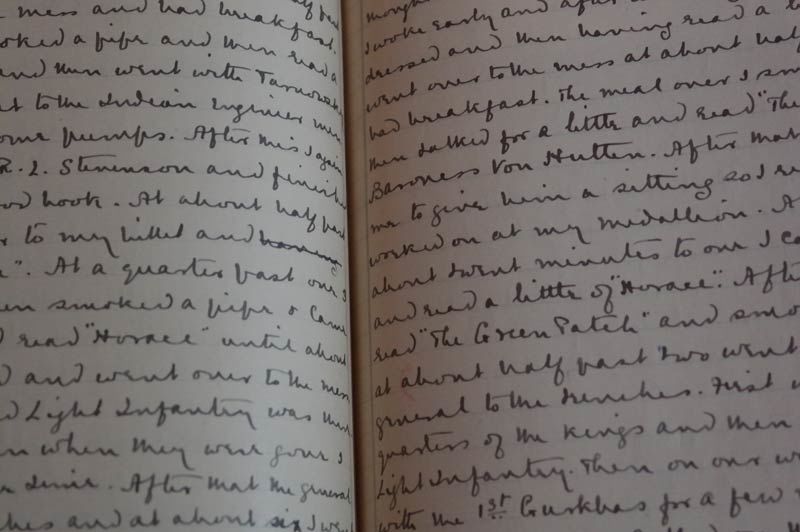 half past
mess and had breakfast.
smoked a pipe and then read a
and then went with Tarnowsky
to the Indian Engineer
some pumps. After this I again
R. L. Stevenson and finished
good book. At about half past
to my billet and having
". At a quarter past one I
smoked a pipe & came
read "Horace" until about
and went over to the mess
Light Infantry was
when they were gone I
time. After that the general
and at about six I went
I woke early and after
dressed and then having read a
went over to the mess at about half
had breakfast. The meal over I
then talked for a little and read "The
Baroness Von Hutten. After that
me to give him a sitting so I
worked on at my medallion.
about twenty minutes to one I
and read a little of "Horace". After
read "The Green Patch" and
at about half past two went
general to the trenches. First
quarters of the Kings and then
Light Infantry. Then on our
with the 1st Gurkhas for a few